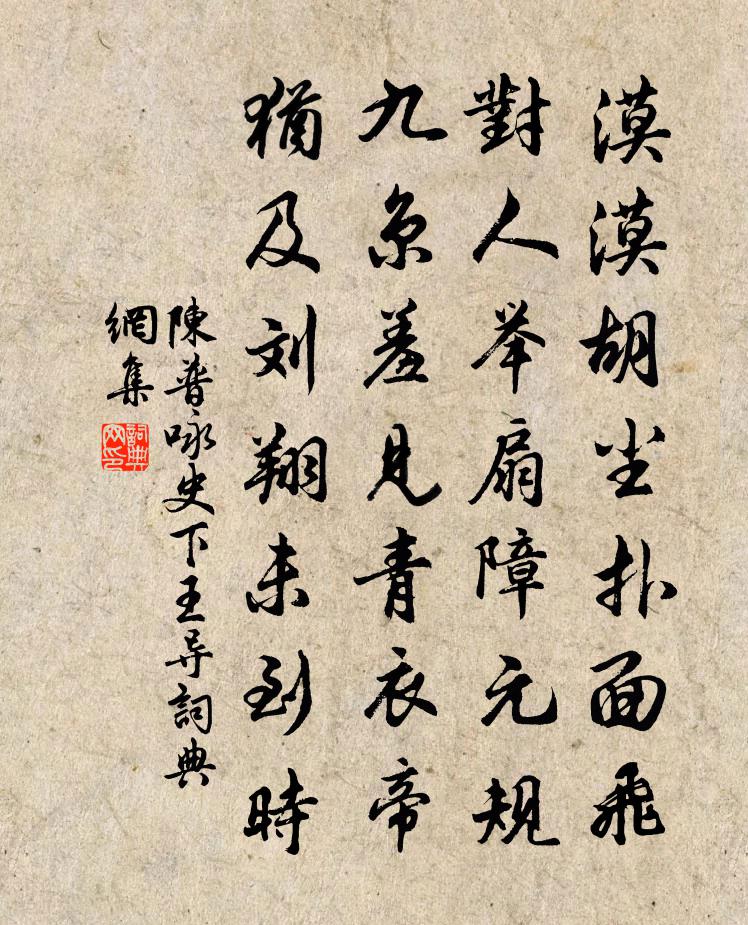 漠漠胡尘扑面飛
對人举扇障元規
九京羞見青衣帝
猶及刘翔未到時
陳普咏史下王导詞典
網集
詞典網印